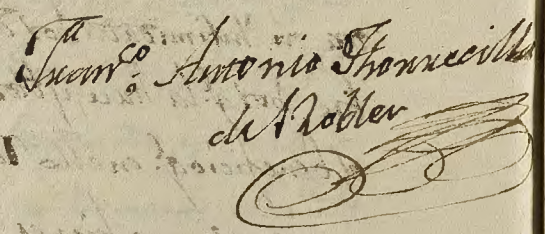 Fran.co Antonio Thorrecilla
de Robles